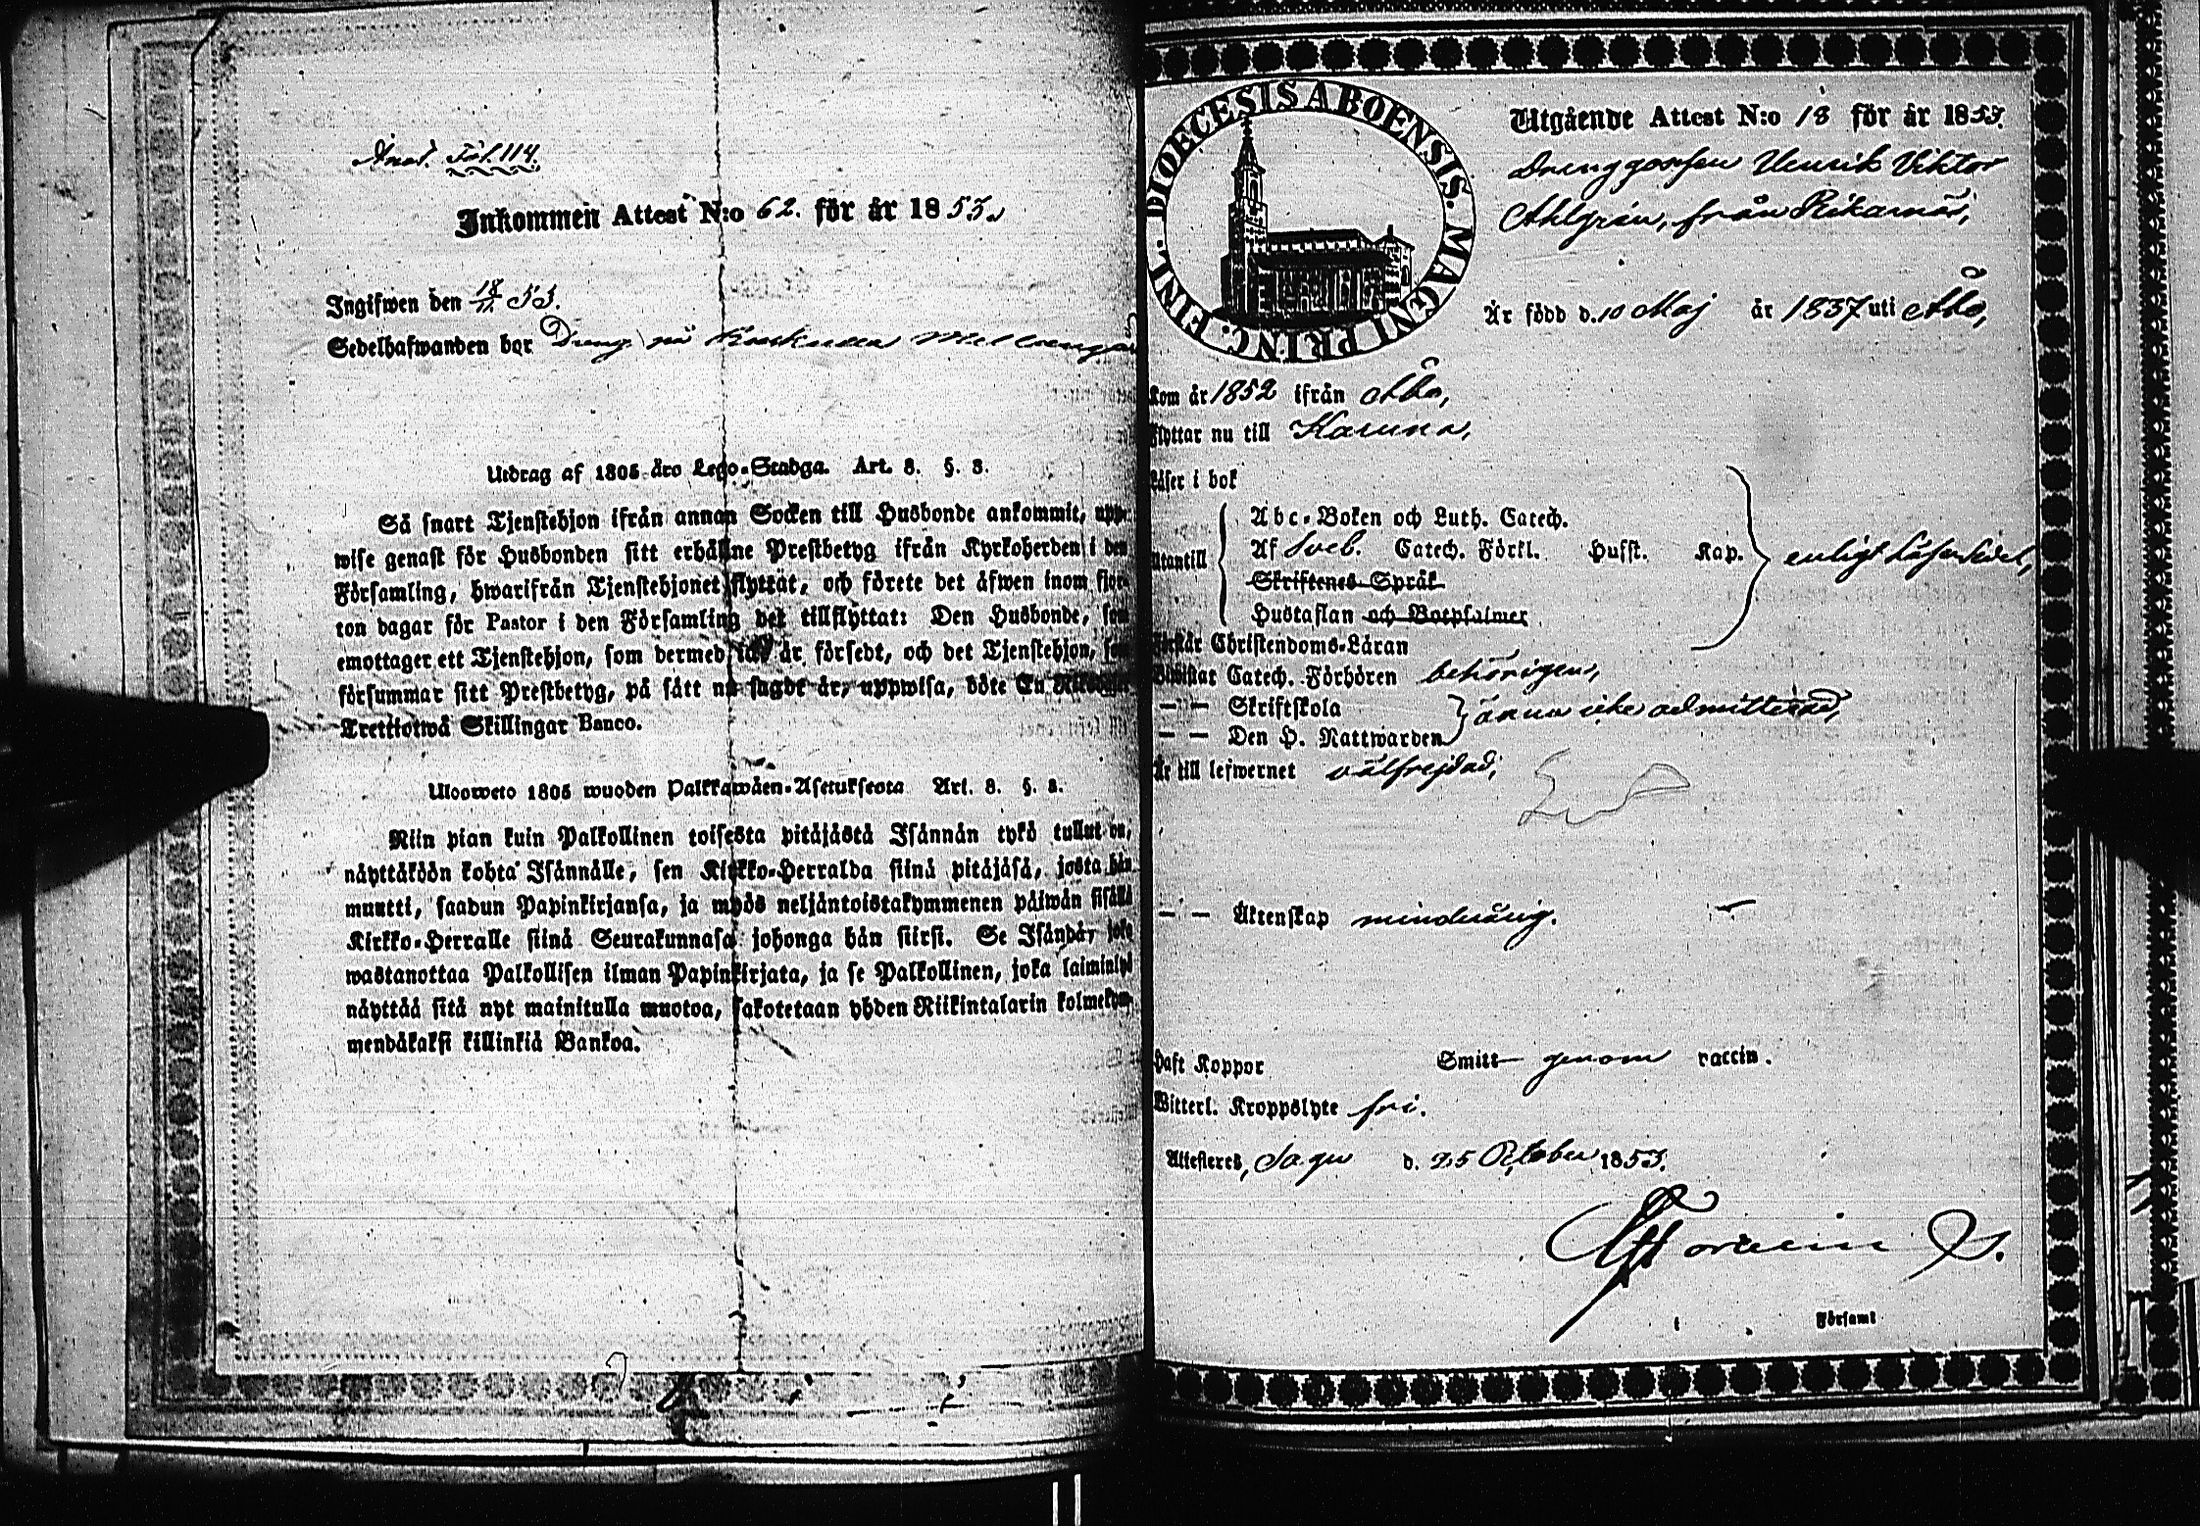 Anot. Fol. 114.
Inkommen Attest N:o 62. för år 1853.
Ingifwen den 18/11 53.
Sedelhafwanden bor Dreng på
Utdrag af 1805 års Lego-Stadga. Art. 8. §. 8.
Så snart Tjenstehjon ifrån annan Socken till Husbonde ankommit, upp-
wise genast för Husbonden sitt erhållne Prestbetyg ifrån Kyrkoherden i den
Församling, hwarifrån Tjenstehjonet flyttat, och förete det äfwen inom fjor-
ton dagar för Pastor i den Församling det tillflyttat: Den Husbonde, som
emottager ett Tjenstehjon, som dermed icke är försedt, och det Tjenstehjon, som
försummar sitt Prestbetyg, på sätt nu sagdt är, uppwisa, böte En Riksdaler
Trettiotwå Skillingar Banco.
Ulosweto 1805 wuoden Palkkawäen-Asetuksesta Art. 8. §. 8.
Niin pian kuin Palkollinen toisesta pitäjästä Isännän tykö tullut on,
näyttäköön kohta Isännälle, sen Kirkko-Herralda siinä pitäjäsä, josta hän
muutti, saadun Papinkirjansa, ja myös neljäntoistakymmenen päiwän sisällä
Kirkko-Herralle siinä Seurakunnasa johonga hän siirsi. Se Isändä, joka
wastanottaa Palkollisen ilman Papinkirjata, ja se Palkollinen, joka laiminlyö
näyttää sitä nyt mainitulla muotoa, sakotetaan yhden Riikintalarin kolmekym-
mendäkaksi killinkiä Bankoa.
DIOECESIS ABOENSIS. MAGNI PRINC. FINL.
Utgående Attest N:o 18 för år 1853.
Drenggossen Henrik Viktor
Ahlgrén, från Rikarnäs,
Är född d. 10 Maj år 1837 uti Åbo,
Kom år 1852 ifrån Åbo,
Flyttar nu till Karuna,
Läser i bok
Utantill
Abc-Boken och Luth. Catech.
Af Sveb. Catech. Förkl. Hufst. Kap. enligt Läsesedel,
Skriftenes Språk
Hustaflan och Botpsalmer
Förstår Christendoms-Läran
Bewistat Catech. Förhören behörigen,
— — Skriftskola
— — Den H. Nattwarden ännu icke admitterad,
Är till lefwernet välfrejdad,
— — Äktenskap minderårig.
Haft Koppor Smitt genom vaccin.
Witterl. Kroppslyte fri.
Attesteres, Sagu d. 25 October 1853.
i Församl